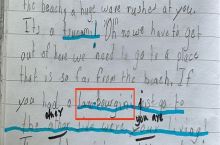 the beach, a huge wave rushes at you.
Its a tsunami! Oh no we have to get
out of here we need to go to a place
that is so far from the beach. If
you had a lamborugini just go to
okay you are
the